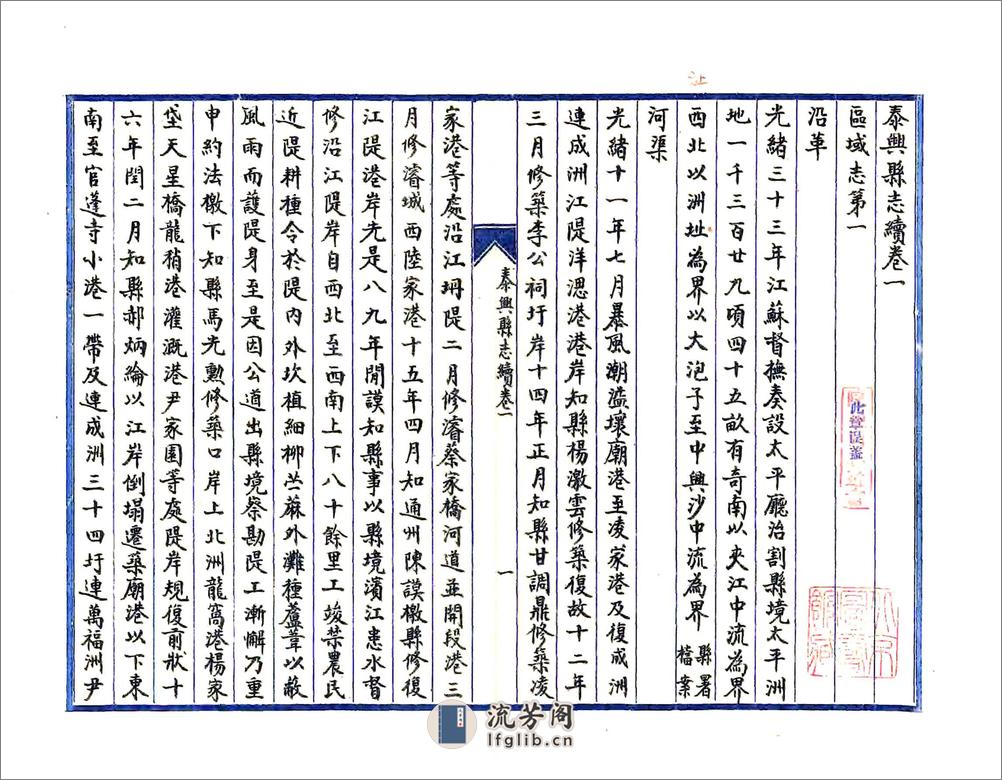 泰興縣志續卷一
區域志第一
沿革
光緒三十三年江蘇督撫奏設太平廳治割縣境太平洲
地一千三百廿九頃四十五畝有奇南以夾江中流為界
西北以洲址為界以大泡子至中興沙中流為界縣署檔案
河渠
光緒十一年七月暴風潮盜壞廟港至凌家港及復成洲
連成洲江隄洋港港岸知縣楊激雲修築復故十二年
三月修築李公祠圩岸十四年正月知縣甘調鼎修築凌
泰興縣志續卷一
一
家港等處沿江坍隄二月修濬蔡家橋河道並開段港三
月修濬城西陸家港十五年四月知通州陳謨檄縣修復
江隄港岸先是八九年閒謨知縣事以縣境濱江患水督
修沿江隄岸自西北至西南上下八十餘里工竣禁農民
近隄耕種令於隄內外坎植細柳苎蔴外灘種蘆葦以敵
風雨而護隄身至是因公道出縣境察勘隄工漸懈乃重
申約法檄下知縣馬光勳修築口岸上北洲龍窩港楊家
垈天星橋龍稍港灌溉港尹家園等處隄岸規復前狀十
六年閏二月知縣郝炳綸以江岸倒塌遷築廟港以下東
南至官蓬寺小港一帶及連成洲三十四圩連萬福洲尹
此章誤蓋
流芳阁
lfglib.cn